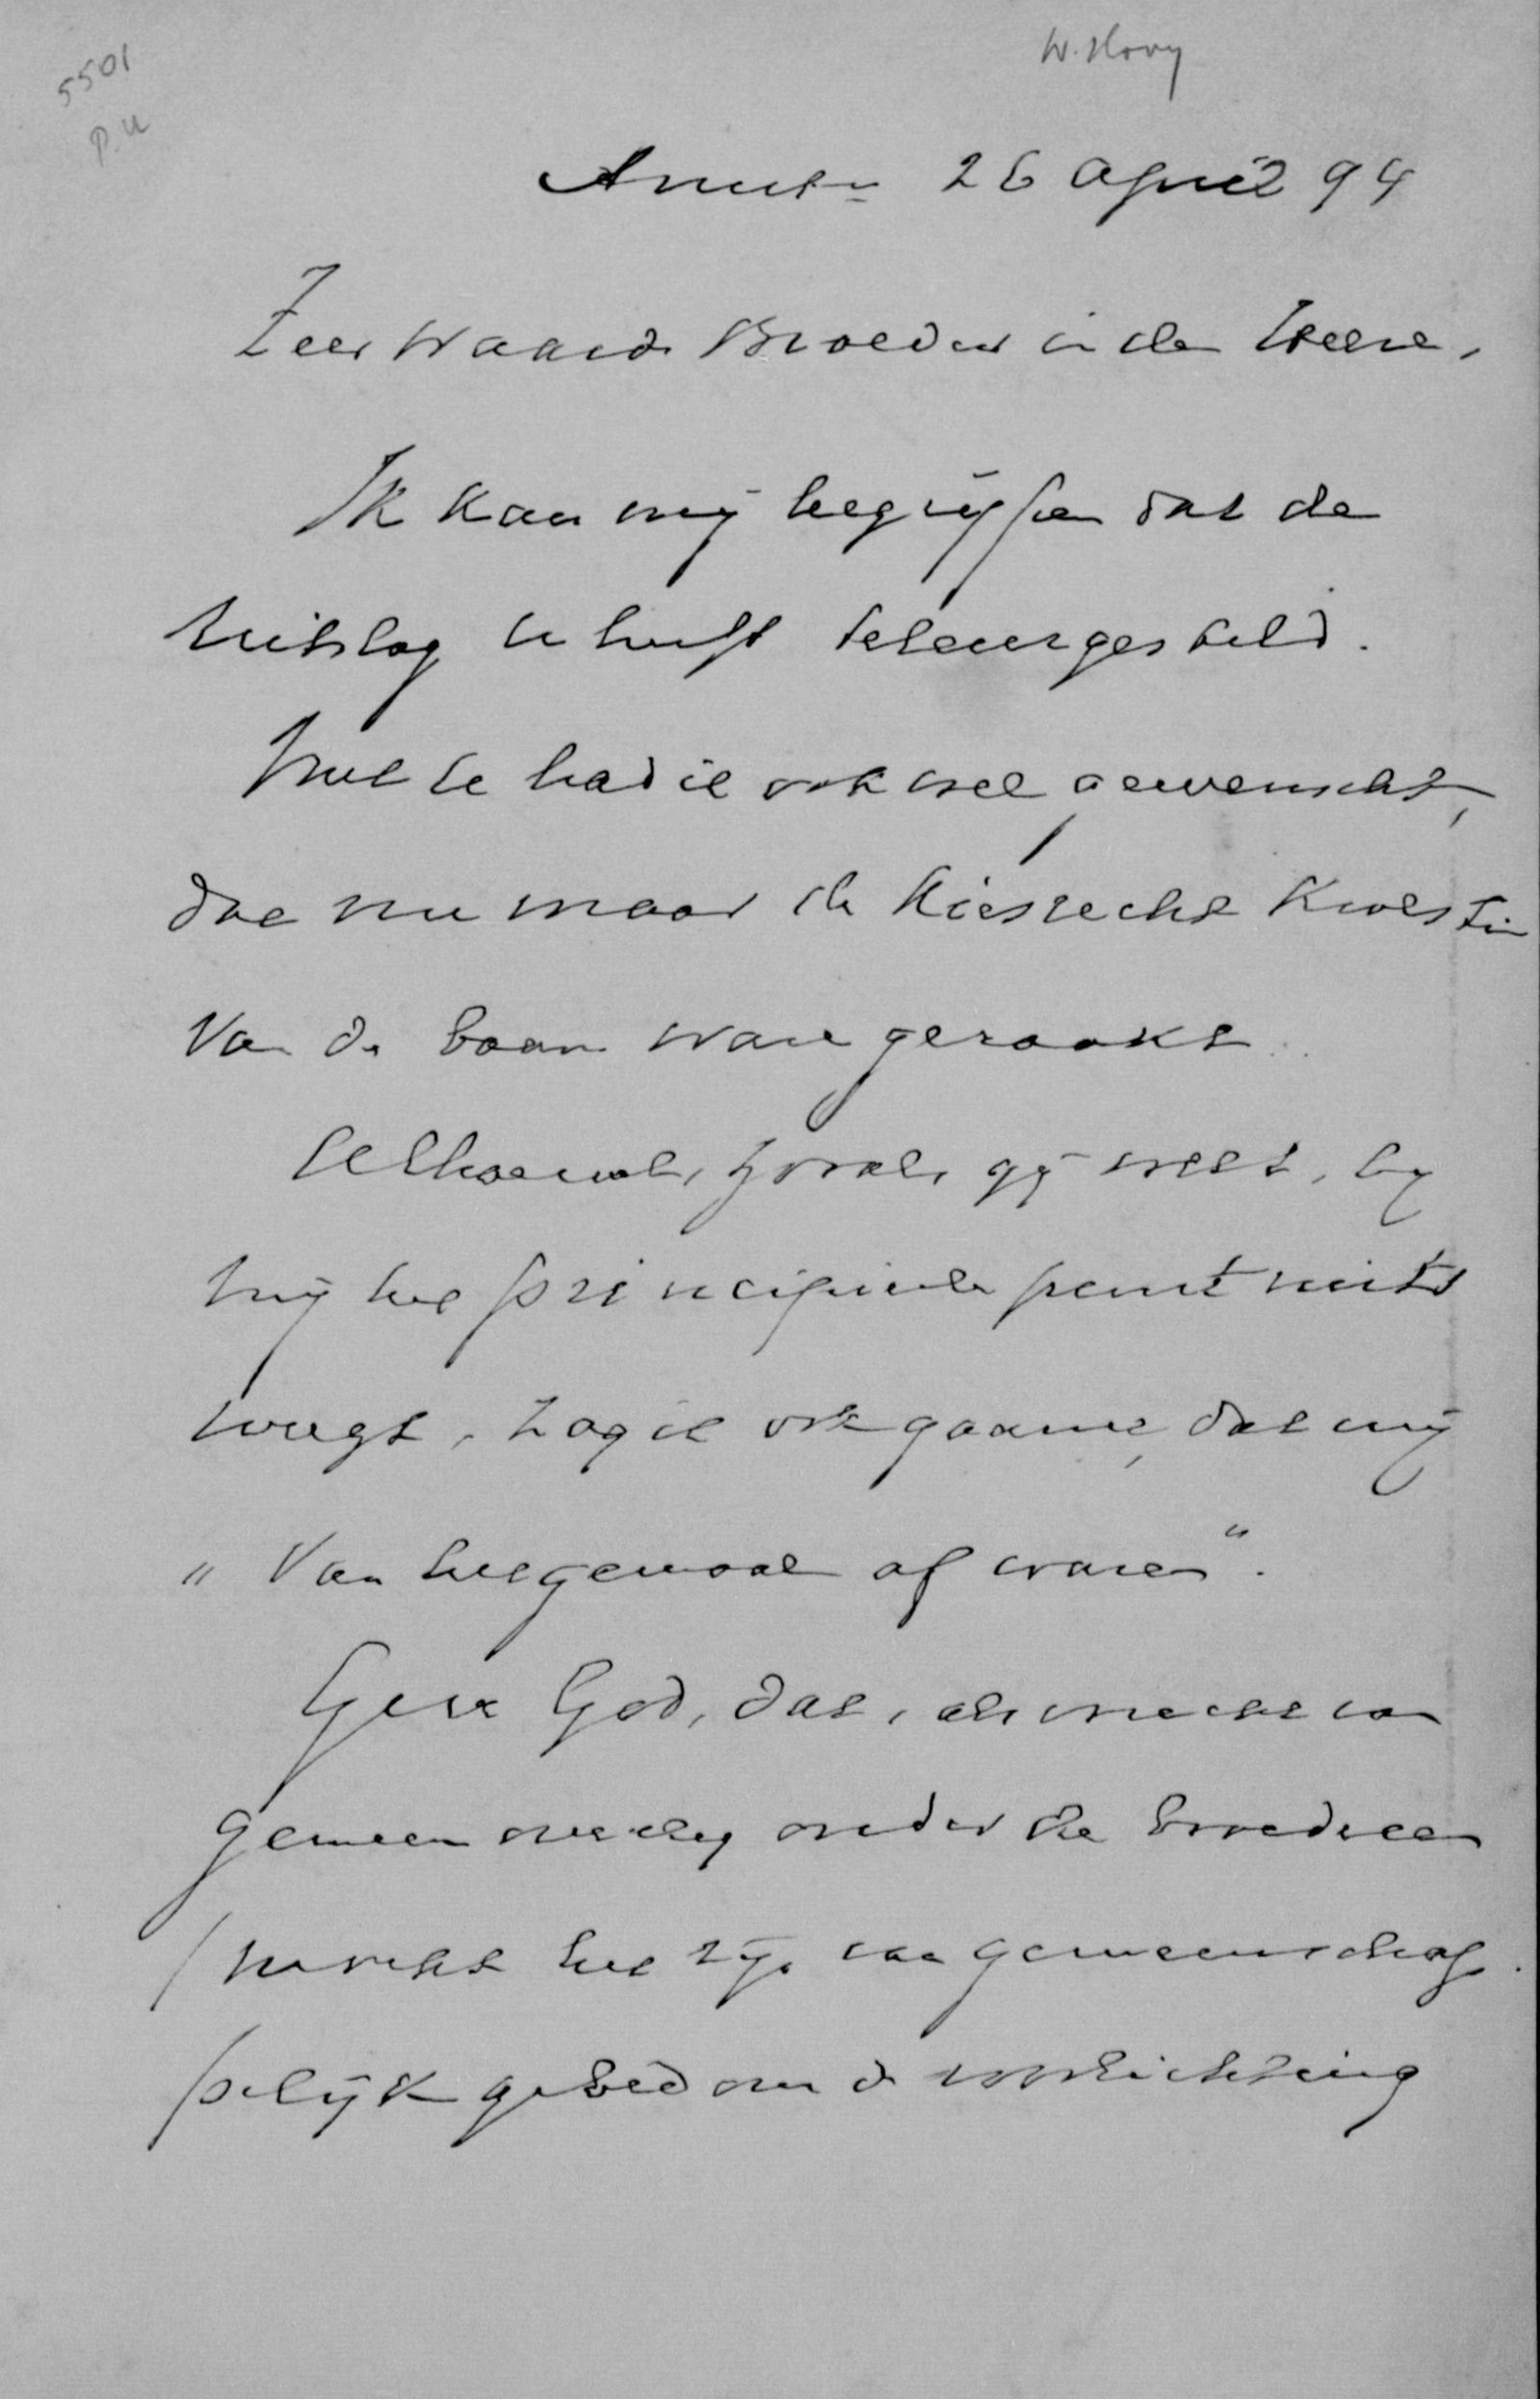 W. Hovy
5501
P.K
Amstm 26 April 94
Zeer Waarde Broeder in den Heere,
Ik kan mij begrijpen dat de
uitslag U heeft teleurgesteld.
Met U had ik ook wel gewenscht,
dat nu maar de Kiesrecht Kwestie
Van de baan ware geraakt.
Alhoewel, zooals gij weet, bij
mij het principieele punt niets
weegt, zag ik ook gaarne, dat wij
„Van het gemaal af waren".
Geve God, dat, als vrucht van
gemeen overleg onder de broederen
mocht het zijn van gemeenschap
pelijk gebed om de voorlichting